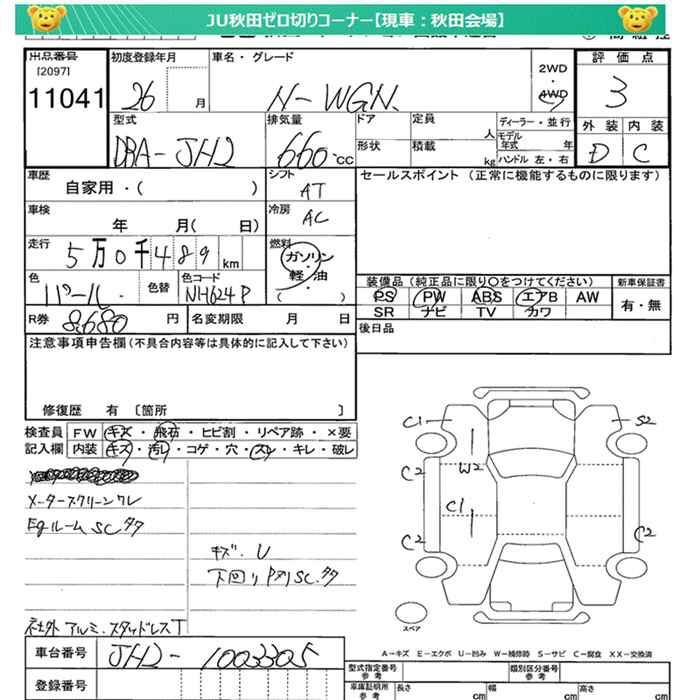 JU秋田ゼロ切りコーナー【現車：秋田会場】
出品番号
[2097]
11041
初度登録年月
26 月
車名・グレード
N-WGN
2WD
・
4WD
評価点
3
外装 内装
D C
型式
DBA-JH2
排気量
660 cc
ドア
形状
定員 人
積載 kg
ディーラー・並行
モデル年式 年
ハンドル 左・右
車歴
自家用・( )
シフト
AT
車検
年 月( 日)
冷房
AC
走行
5万0千489 km
燃料
ガソリン
軽・油
( )
色
パール
色替
色コード
NH624P
R券 8,680 円
名変期限 月 日
セールスポイント（正常に機能するものに限ります）
装備品（純正品に限り○をつけてください）
新車保証書
PS PW ABS エアB AW
SR ナビ TV カワ
有・無
後日品
注意事項申告欄（不具合内容等は具体的に記入して下さい）
修復歴 有 〔箇所 〕
検査員記入欄
FW キズ・飛石・ヒビ割・リペア跡・×要
内装 キズ・汚レ・コゲ・穴・スレ・キレ・破レ
メータースクリーンワレ
Egルーム SC タタ
キズ、U
社外アルミ、スタッドレスT
C1
S2
C2
W2
C1
C2
C2
スペア
A－キズ E－エクボ U－凹み W－補修跡 S－サビ C－腐食 XX－交換済
車台番号
JH2-1003305
登録番号
型式指定番号
参考
類別区分番号
参考
車庫証明用
参考
長さ cm
幅 cm
高さ cm